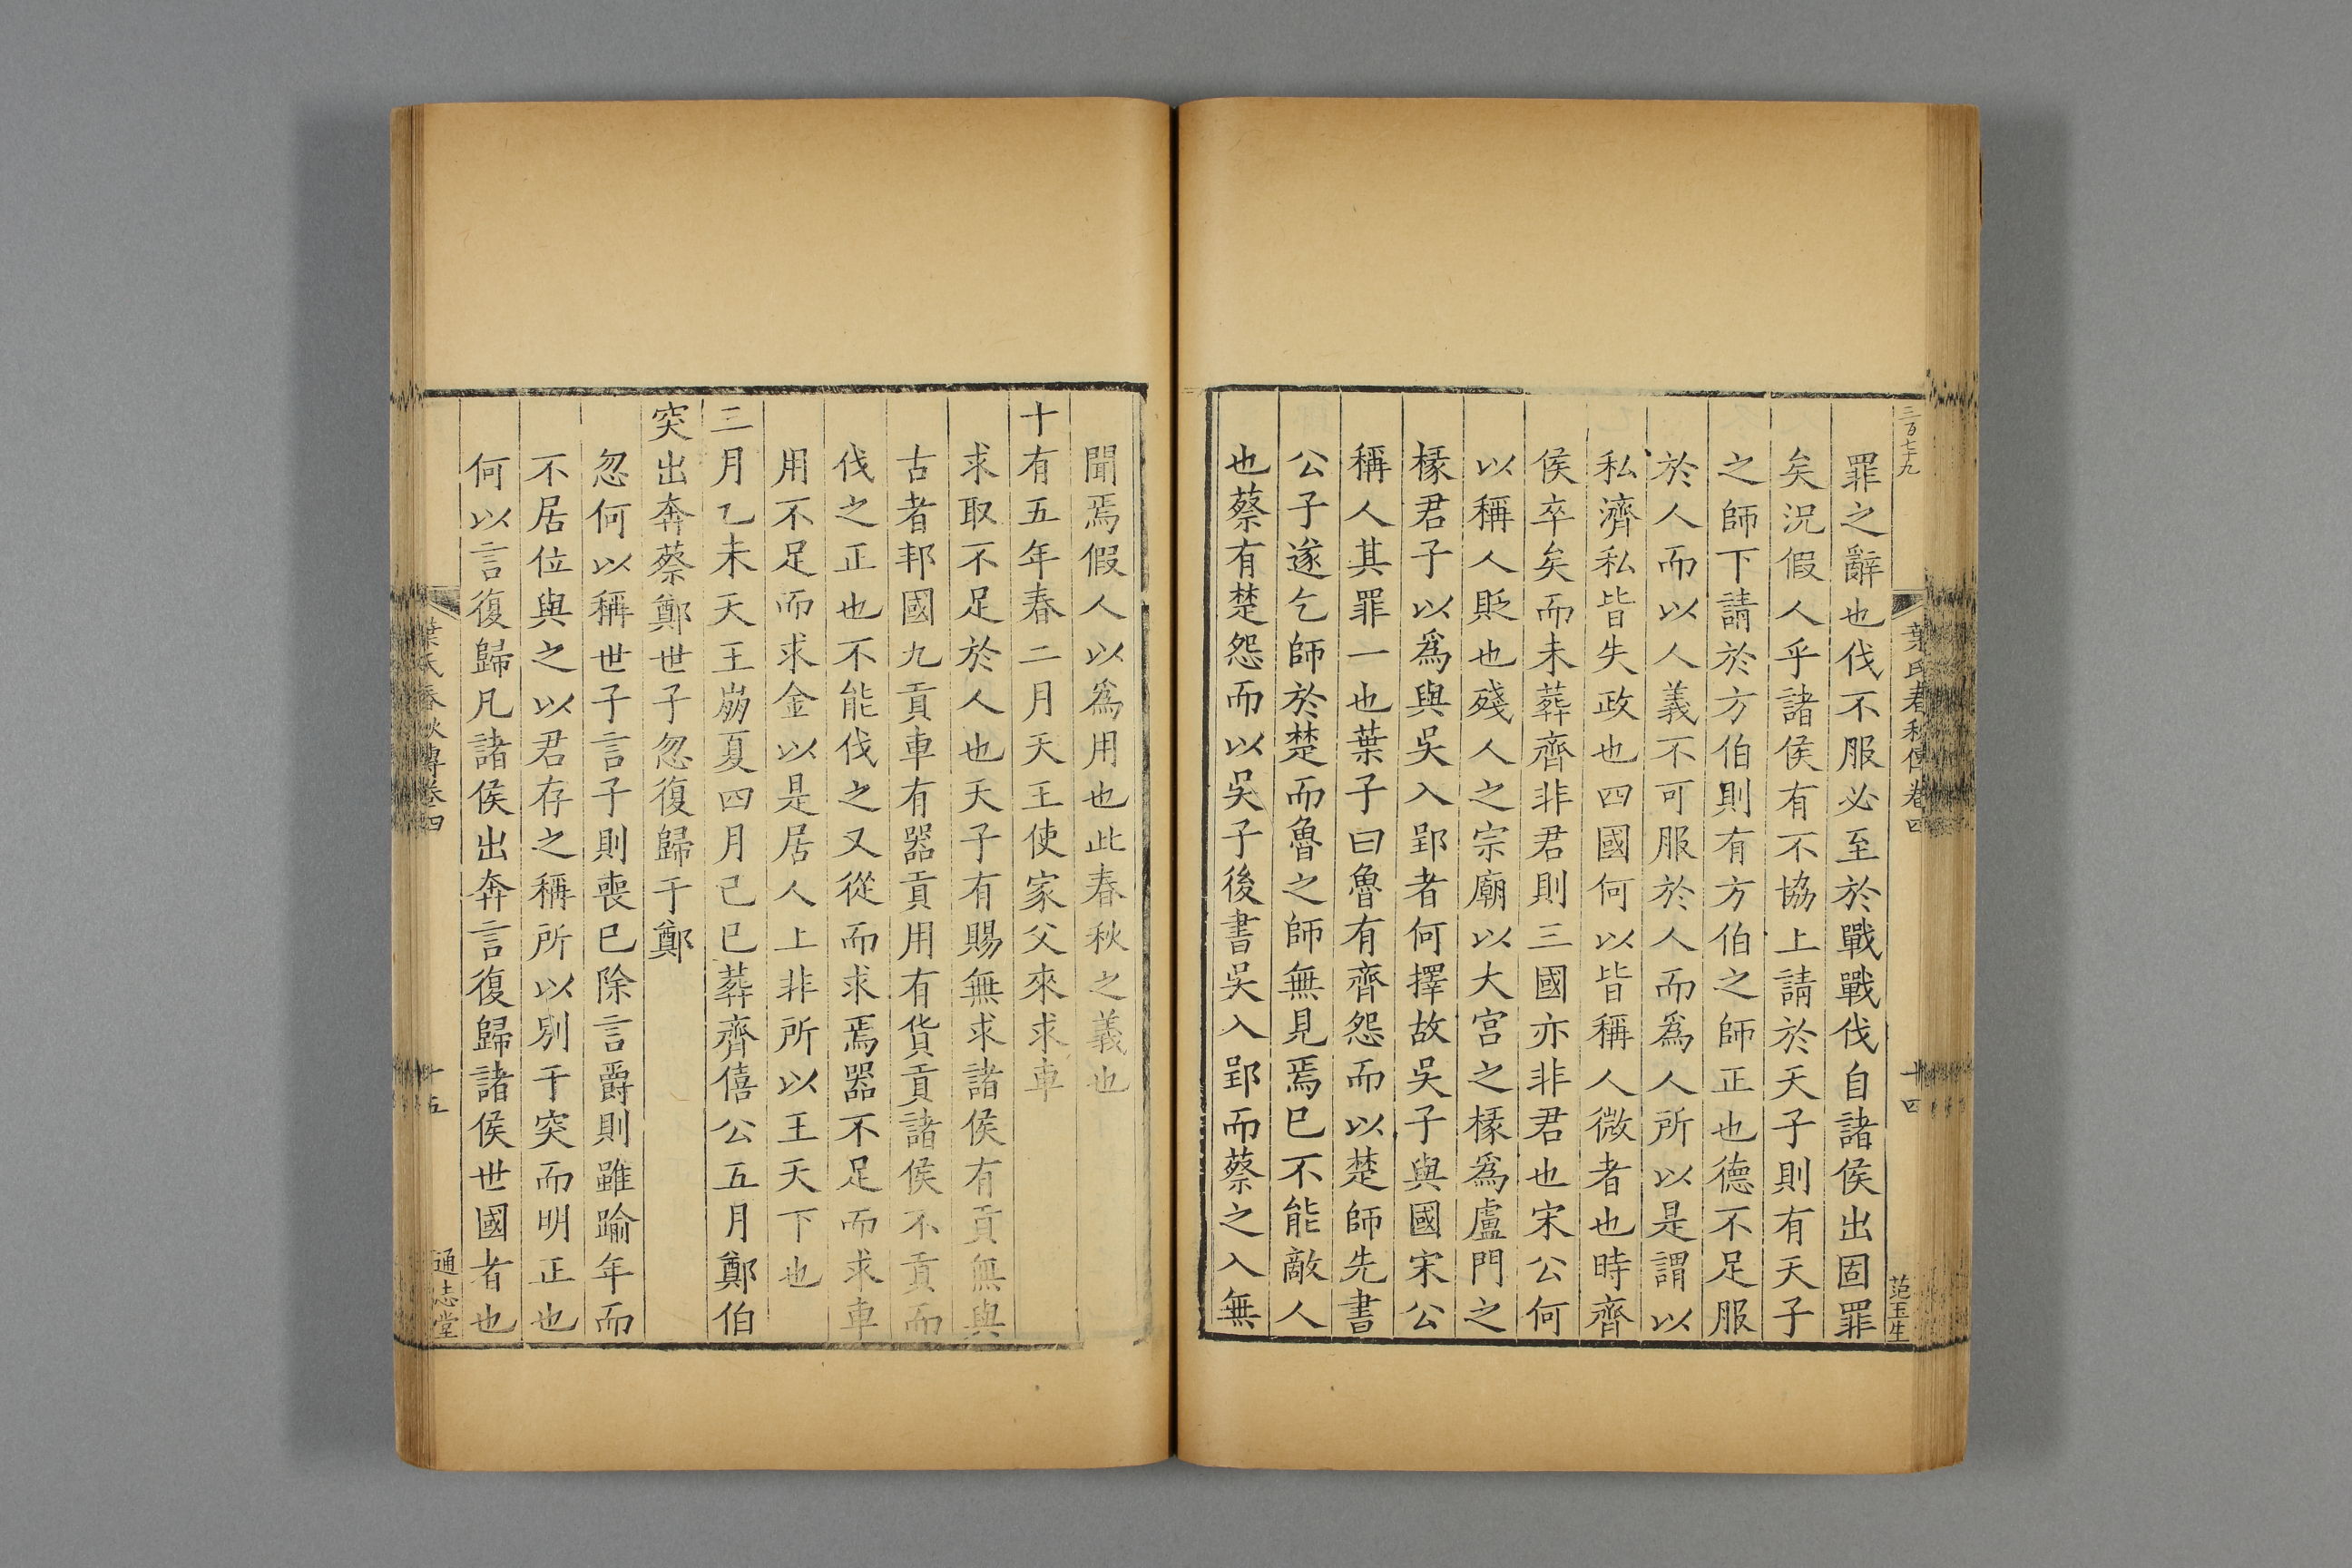 三百七十九
葉氏春秋傳卷四
十四
范玉生
罪之辭也伐不服必至於戰戰伐自諸侯出固罪
矣況假人乎諸侯有不協上請於天子則有天子
之師下請於方伯則有方伯之師正也德不足服
於人而以人義不可服於人而爲人所以是謂以
私濟私皆失政也四國何以皆稱人微者也時齊
侯卒矣而未葬齊非君則三國亦非君也宋公何
以稱人貶也殘人之宗廟以大宫之椽爲盧門之
椽君子以爲與吳入郢者何擇故吳子與國宋公
稱人其罪一也葉子曰魯有齊怨而以楚師先書
公子遂乞師於楚而魯之師無見焉巳不能敵人
也蔡有楚怨而以吳子後書吳入郢而蔡之入無
聞焉假人以爲用也此春秋之義也
十有五年春二月天王使家父來求車
求取不足於人也天子有賜無求諸侯有貢無與
古者邦國九貢車有器貢用有貨貢諸侯不貢而
伐之正也不能伐之又從而求焉器不足而求車
用不足而求金以是居人上非所以王天下也
三月乙未天王崩夏四月己巳葬齊僖公五月鄭伯
突出奔蔡鄭世子忽復歸于鄭
忽何以稱世子言子則喪巳除言爵則雖踰年而
不居位與之以君存之稱所以别于突而明正也
何以言復歸凡諸侯出奔言復歸諸侯世國者也
葉氏春秋傳卷四
十五
通志堂